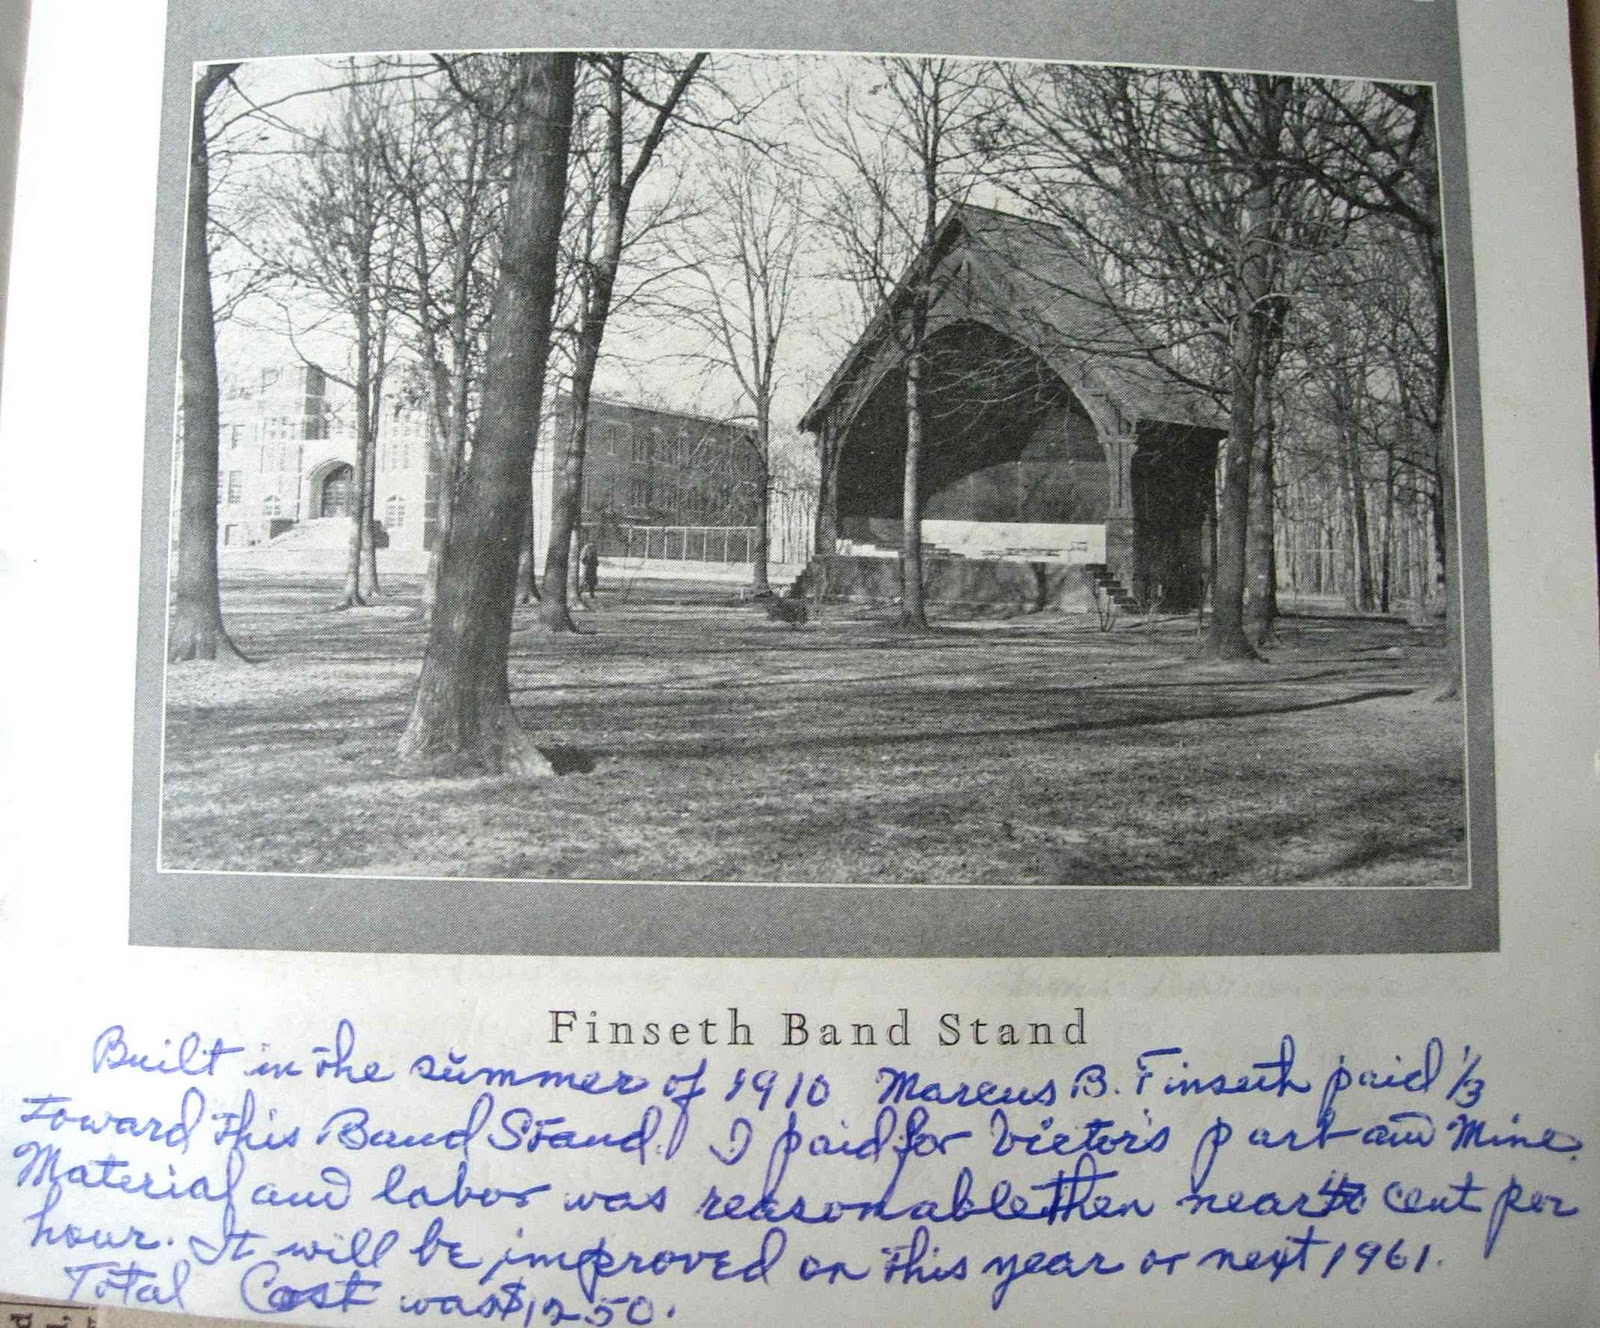 Finseth Band Stand
Built in the summer of 1910 Marcus B. Finseth paid 1/3
toward this Band Stand. I paid for Victor's part and Mine.
Material and labor was reasonable then near cent per
hour. It will be improved on this year or next 1961.
Total Cost was $1250.